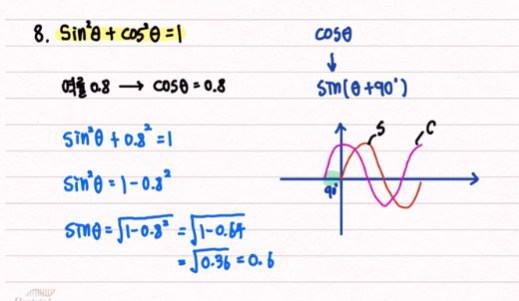 8. Sin²θ + cos²θ = 1
역률 0.8 → cosθ = 0.8
Sin²θ + 0.8² = 1
Sin²θ = 1 - 0.8²
Sinθ = √1-0.8² = √1-0.64
= √0.36 = 0.6
cosθ
↓
Sin(θ+90°)
S
C
90°